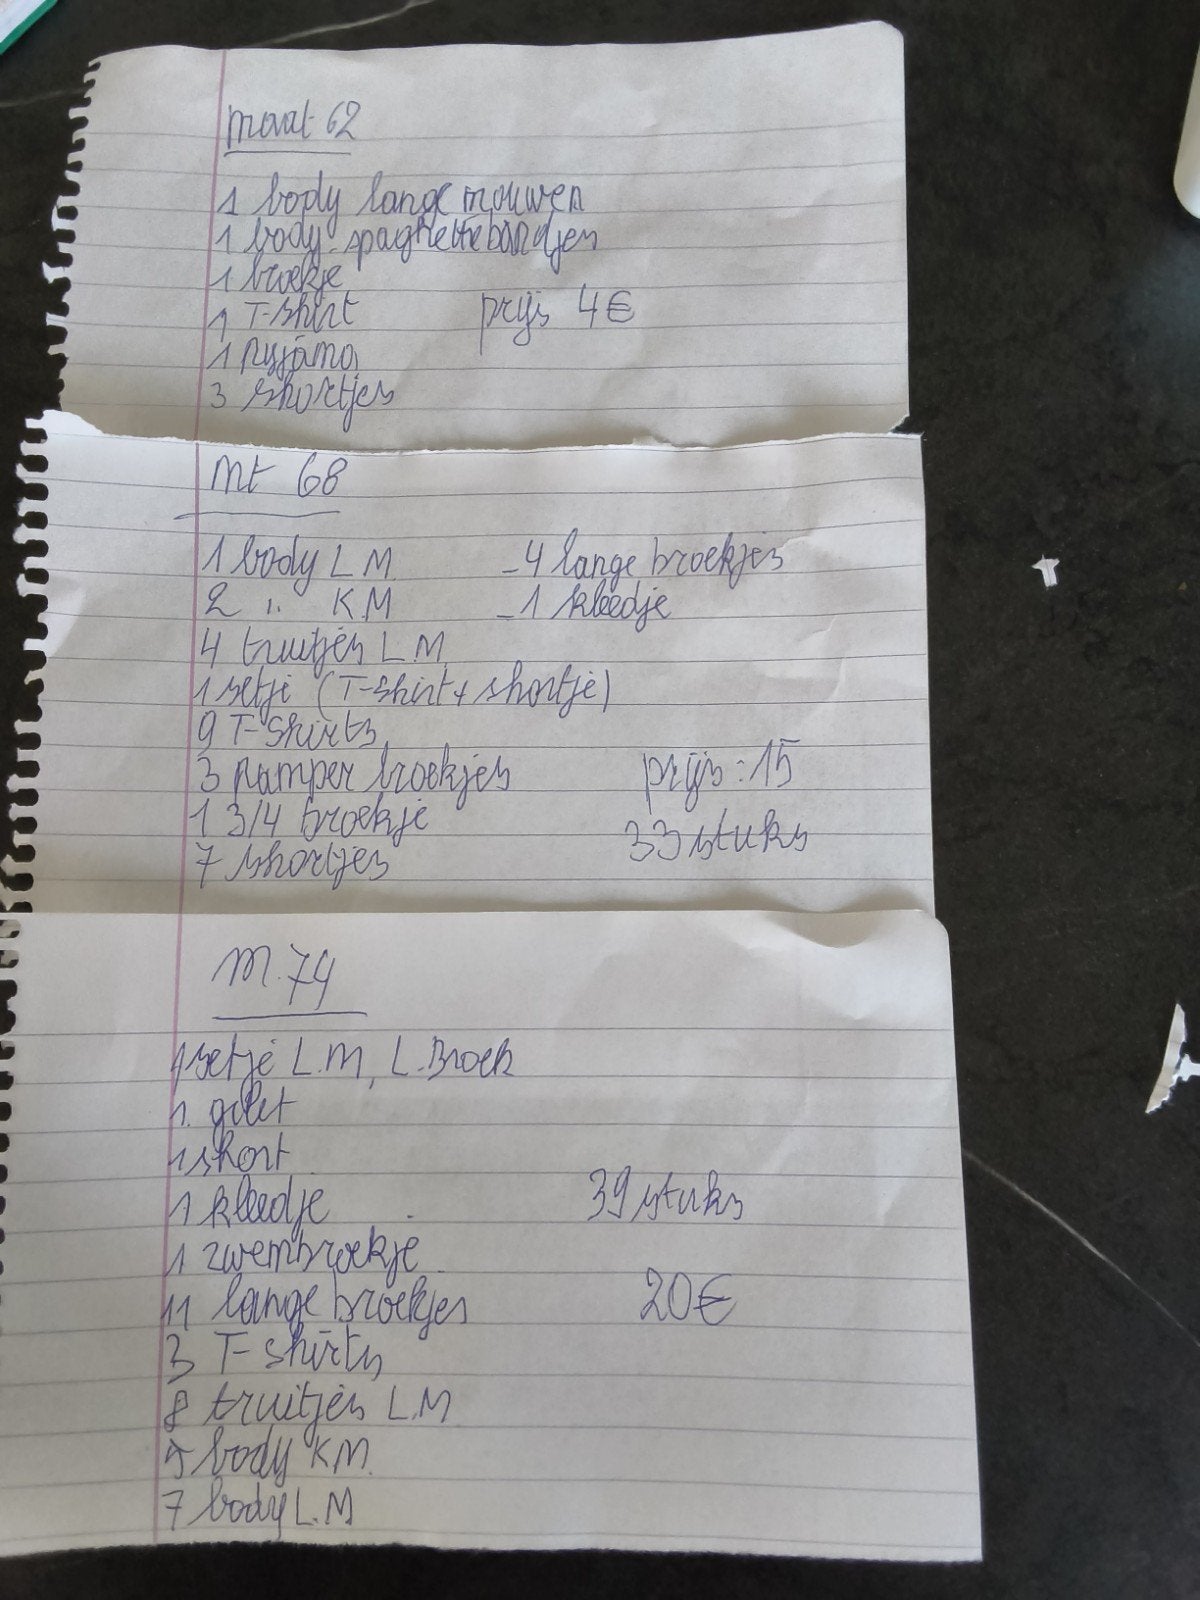 maat 62
1 body lange mouwen
1 body spaghettiebandjes
1 broekje
1 T-shirt prijs 4€
1 pyjama
3 shortjes
mt 68
1 body L M - 4 lange broekjes
2 " KM - 1 kleedje
4 truitjes L.M
1 setje (T-shirt + shortje)
9 T-shirts
3 pamper broekjes prijs : 15
1 3/4 broekje 33 stuks
7 shortjes
M. 74
1 setje L.M, L. Broek
1. gilet
1 short
1 kleedje 39 stuks
1 zwembroekje
11 lange broekjes 20€
3 T-shirts
8 truitjes L.M
5 body KM
7 body L.M